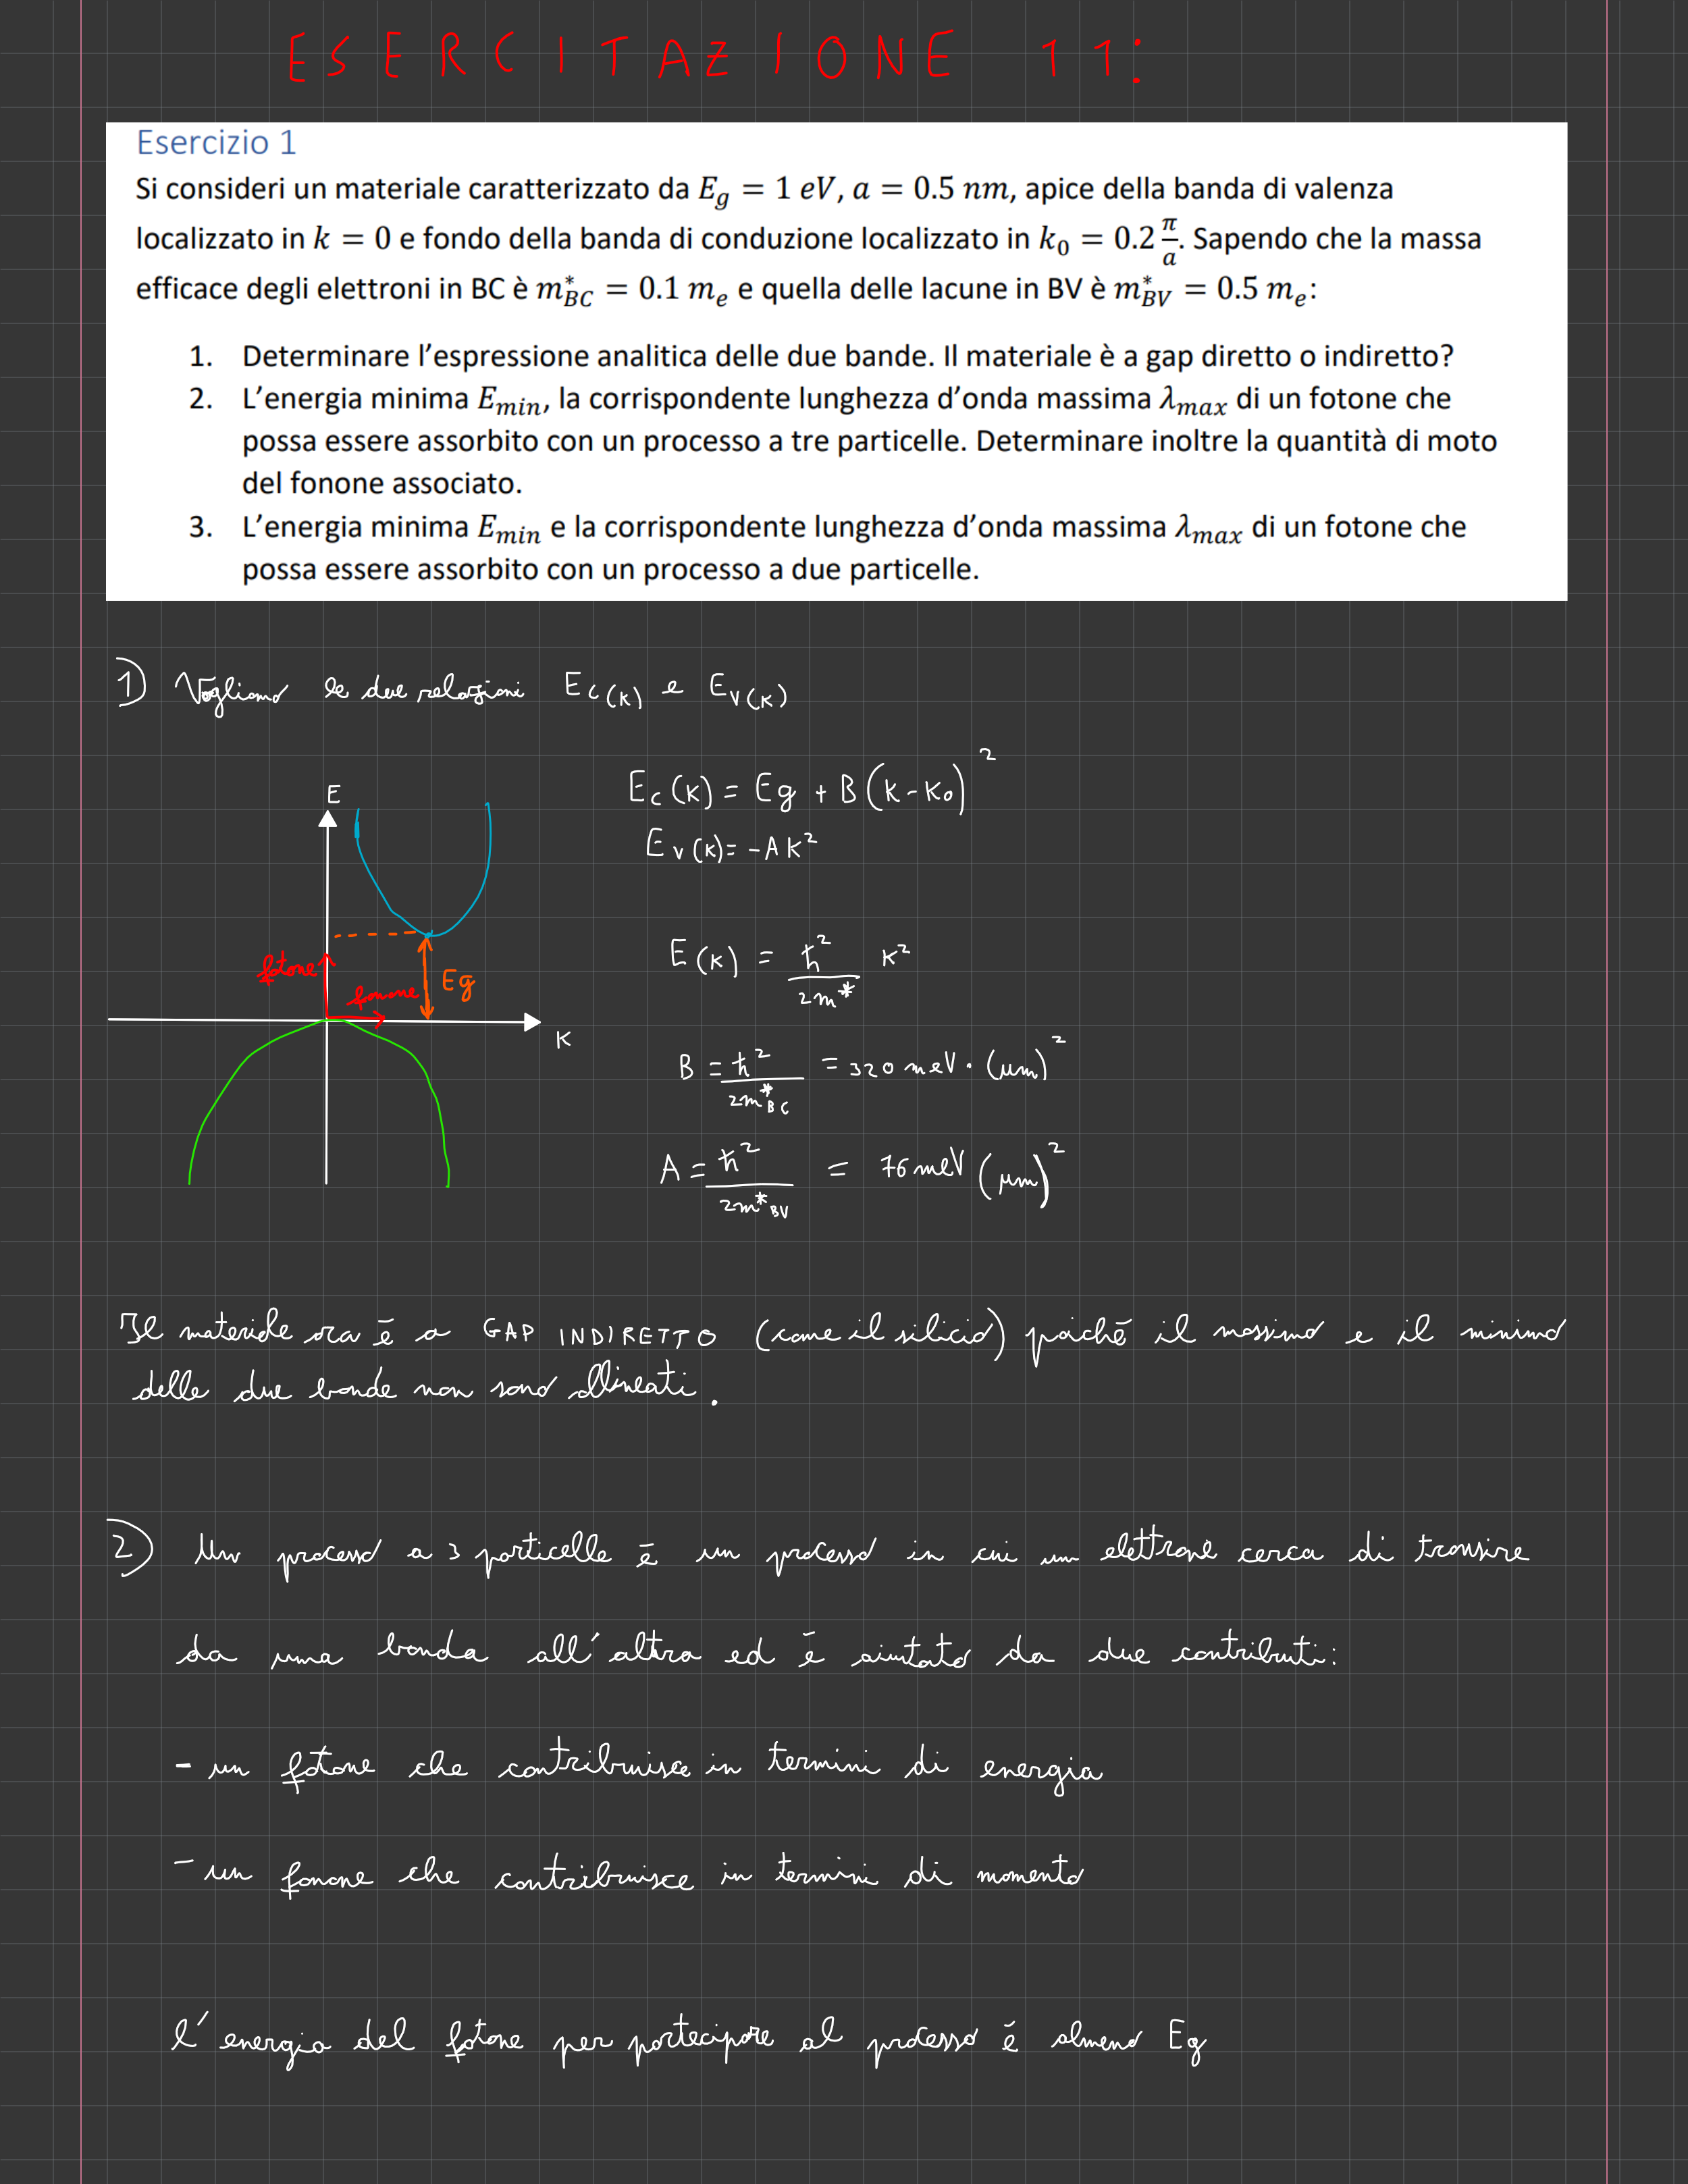 ESERCITAZIONE 11:
Esercizio 1
Si consideri un materiale caratterizzato da E_g = 1 eV, a = 0.5 nm, apice della banda di valenza
localizzato in k = 0 e fondo della banda di conduzione localizzato in k_0 = 0.2 π/a. Sapendo che la massa
efficace degli elettroni in BC è m*_BC = 0.1 m_e e quella delle lacune in BV è m*_BV = 0.5 m_e:
1. Determinare l'espressione analitica delle due bande. Il materiale è a gap diretto o indiretto?
2. L'energia minima E_min, la corrispondente lunghezza d'onda massima λ_max di un fotone che
possa essere assorbito con un processo a tre particelle. Determinare inoltre la quantità di moto
del fonone associato.
3. L'energia minima E_min e la corrispondente lunghezza d'onda massima λ_max di un fotone che
possa essere assorbito con un processo a due particelle.
1) Vogliamo le due relazioni E_C(K) e E_V(K)
E
fotone
fonone
Eg
K
E_C(K) = Eg + B(K-K_0)^2
E_V(K) = -AK^2
E(K) = ħ^2/2m* K^2
B = ħ^2/2m*_BC = 320 meV · (μm)^2
A = ħ^2/2m*_BV = 76 meV (μm)^2
Il materiale ora è a GAP INDIRETTO (come il silicio) poiché il massimo e il minimo
delle due bande non sono allineati.
2) Un processo a 3 particelle è un processo in cui un elettrone cerca di transire
da una banda all'altra ed è aiutato da due contributi:
- un fotone che contribuisce in termini di energia
- un fonone che contribuisce in termini di momento
l'energia del fotone per partecipare al processo è almeno Eg